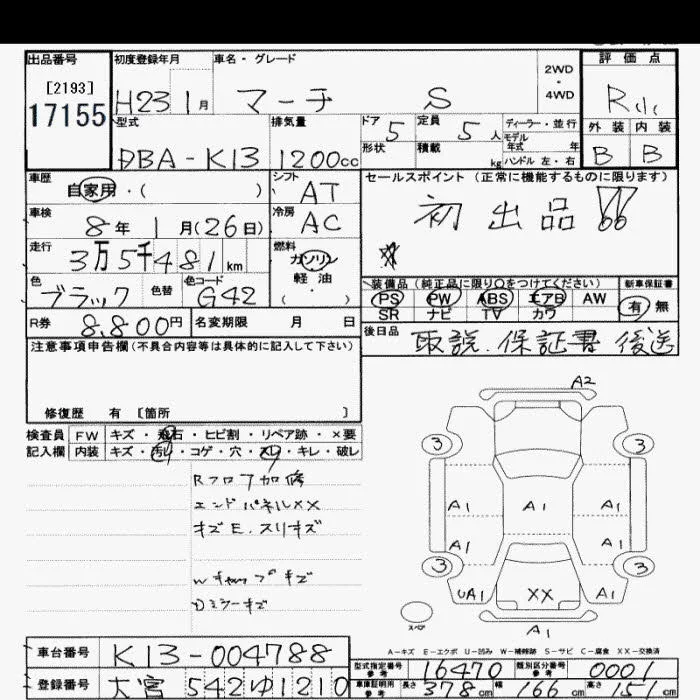 出品番号
[2193]
17155
初度登録年月
H23 1月
車名・グレード
マーチ S
2WD
・
4WD
評価点
R
外装 内装
B B
型式
DBA-K13
排気量
1200cc
ドア 5
定員 5人
形状
積載 kg
ディーラー・並行
モデル年式 年
ハンドル 左・右
車歴
自家用・( )
シフト
AT
セールスポイント (正常に機能するものに限ります)
初出品!!
車検
8年 1月(26日)
冷房
AC
走行
3万5千481km
燃料
ガソリン
軽・油
・( )
色
ブラック
色替
色コード
G42
装備品(純正品に限り○をつけてください)
PS PW ABS エアB AW
SR ナビ TV カワ
新車保証書
有 無
R券 8,800円
名変期限 月 日
後日品
取説.保証書 後送
注意事項申告欄(不具合内容等は具体的に記入して下さい)
修復歴 有 [箇所 ]
検査員記入欄
FW キズ・飛石・ヒビ割・リペア跡・×要
内装 キズ・汚れ・コゲ・穴・スレ・キレ・破レ
Rフロア加修
エンドパネルXX
キズE.スリキズ
Wキャップキズ
Dミラーキズ
A2
3 3
A1 A1 A1
A1 A1
3 3
UA1 XX A1
スペア
A1
A-キズ E-エクボ U-凹み W-補修跡 S-サビ C-腐食 XX-交換済
車台番号
K13-004788
型式指定番号 参考
16470
類別区分番号 参考
0001
登録番号
大宮 542ゆ1210
車庫証明用 参考
長さ 378cm 幅 166cm 高さ 151cm